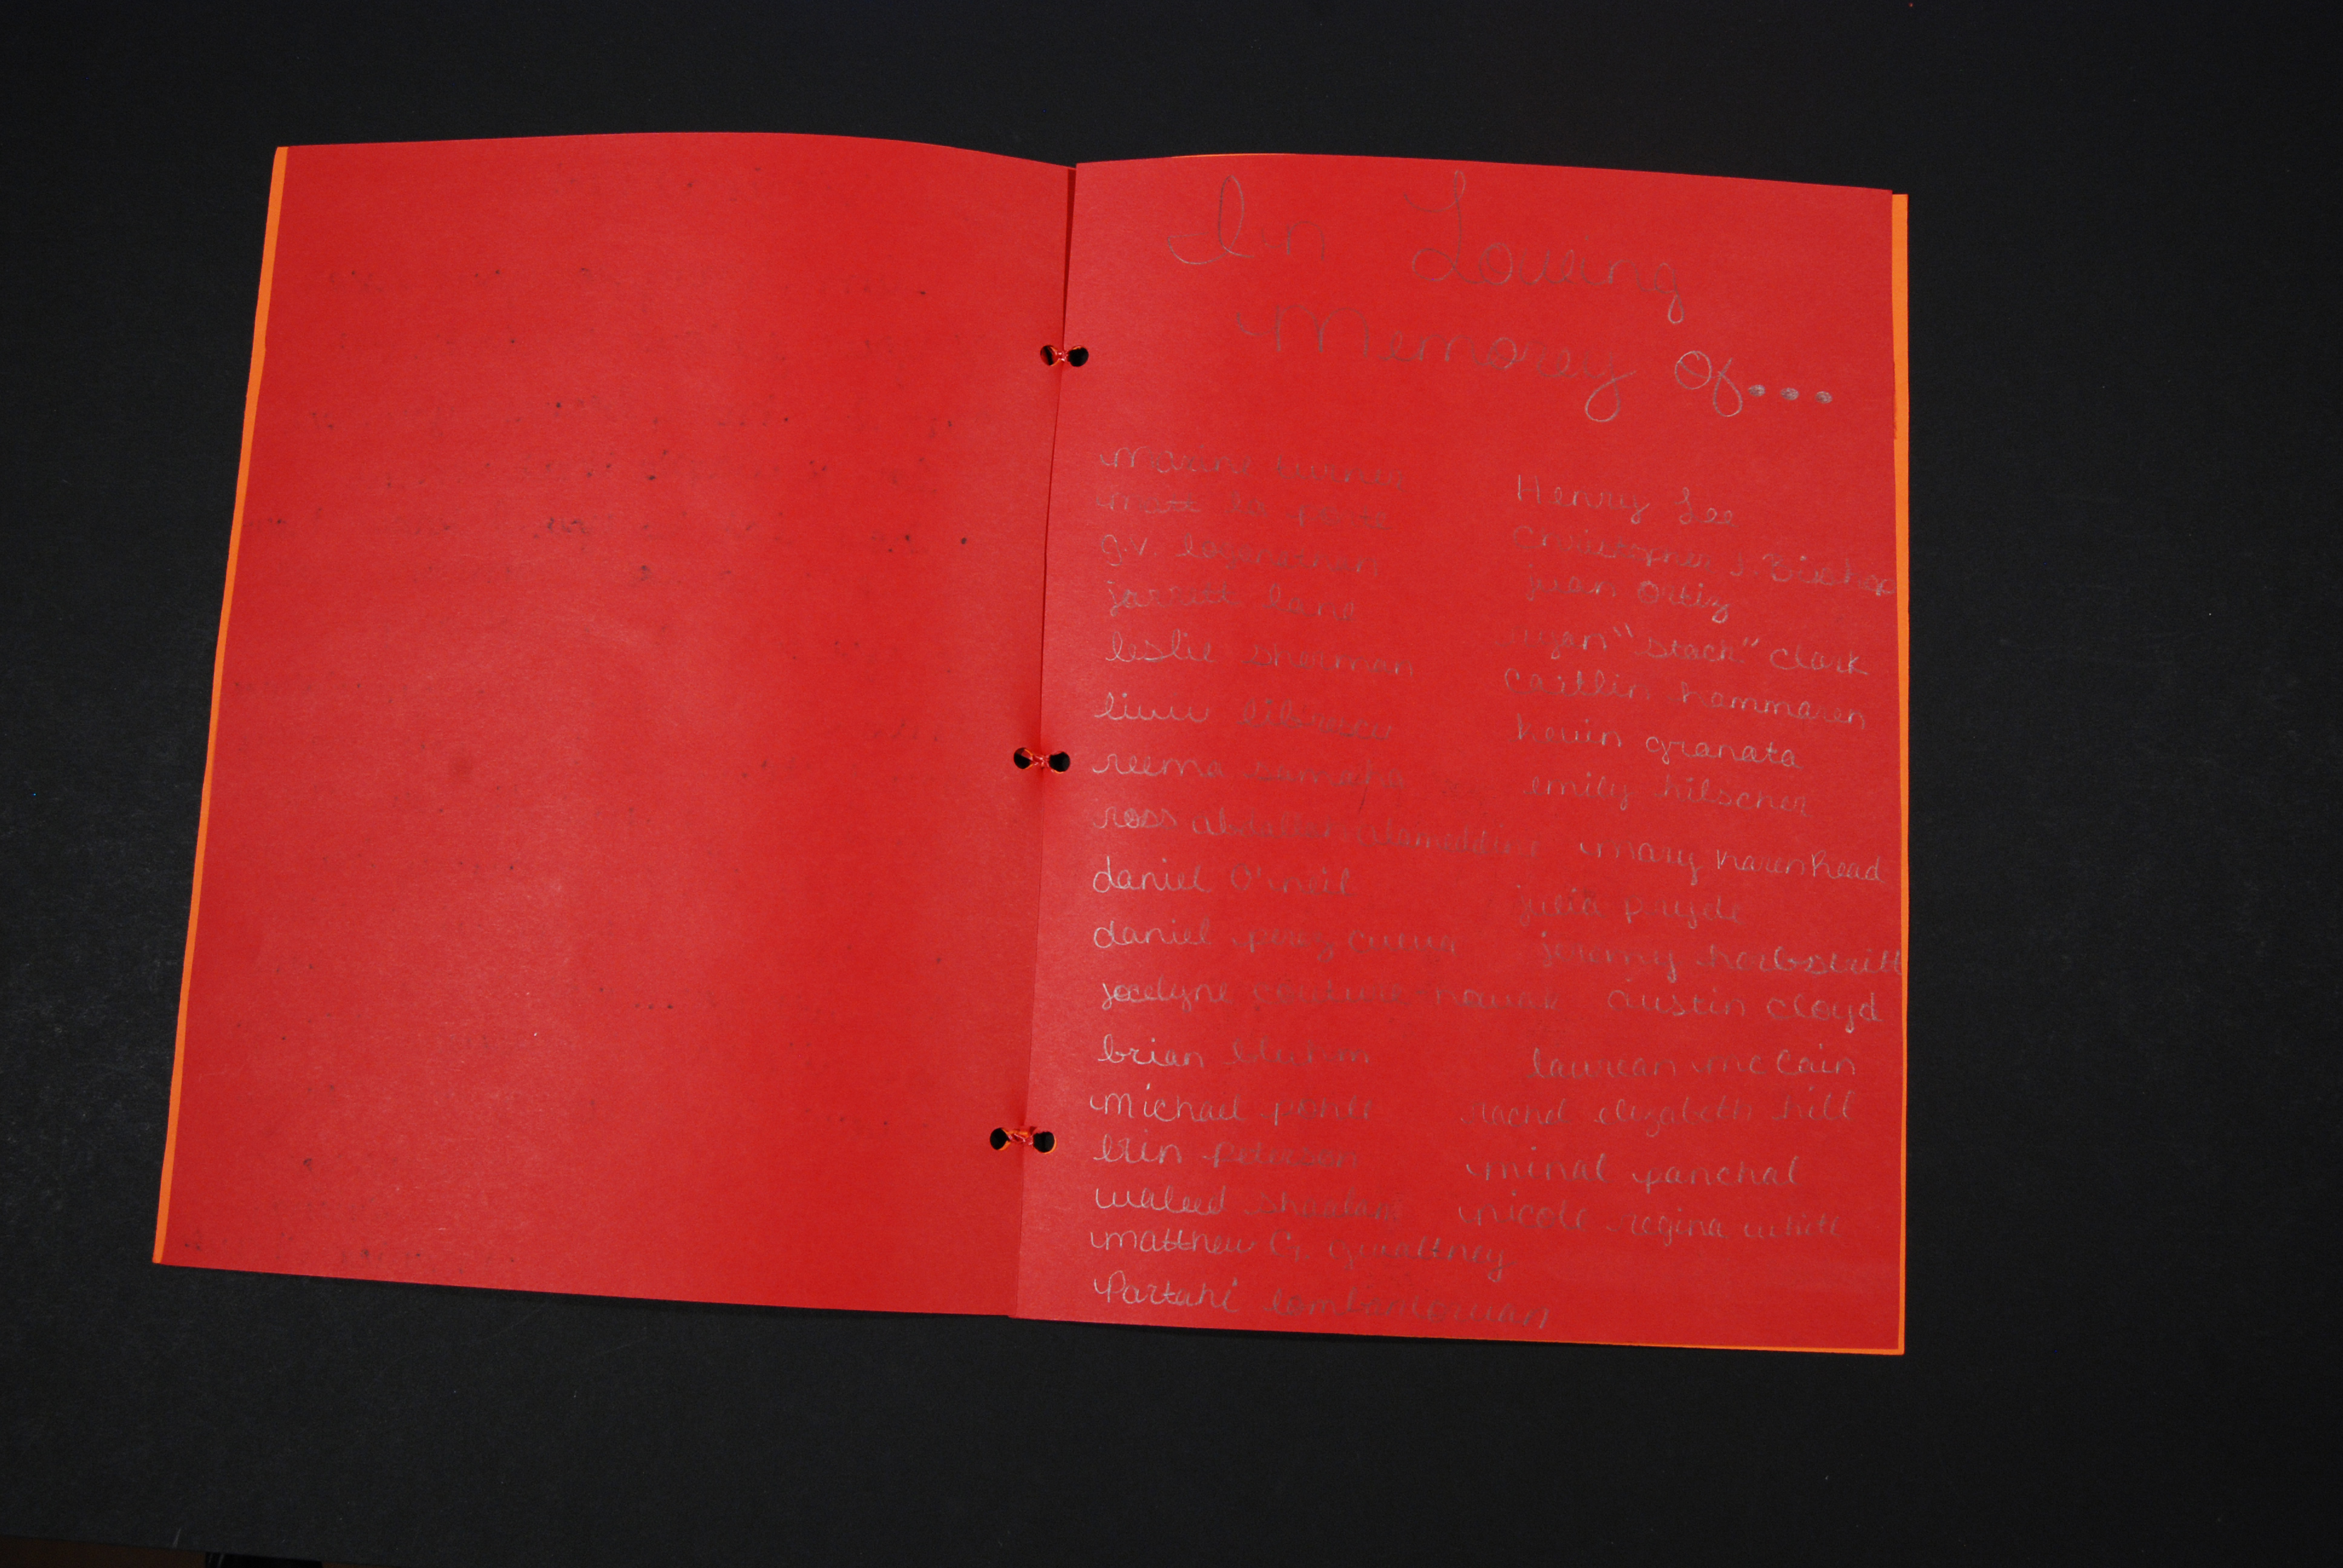 In Loving
Memory Of...
maxine turner
matt la porte
g.v. loganathan
jarrett lane
leslie sherman
liviu librescu
reema samaha
ross abdallah alameddine
daniel O'neil
daniel perez cueva
jocelyne couture-nowak
brian bluhm
michael pohle
Erin peterson
waleed shaalan
matthew G. gwaltney
Partahi lombantoruan
Henry Lee
Christopher J. Bishop
juan Ortiz
ryan "stack" clark
caitlin hammaren
kevin granata
emily hilscher
mary karen Read
julia pryde
jeremy herbstritt
austin cloyd
laurean mc Cain
rachel elizabeth hill
minal panchal
nicole regina white